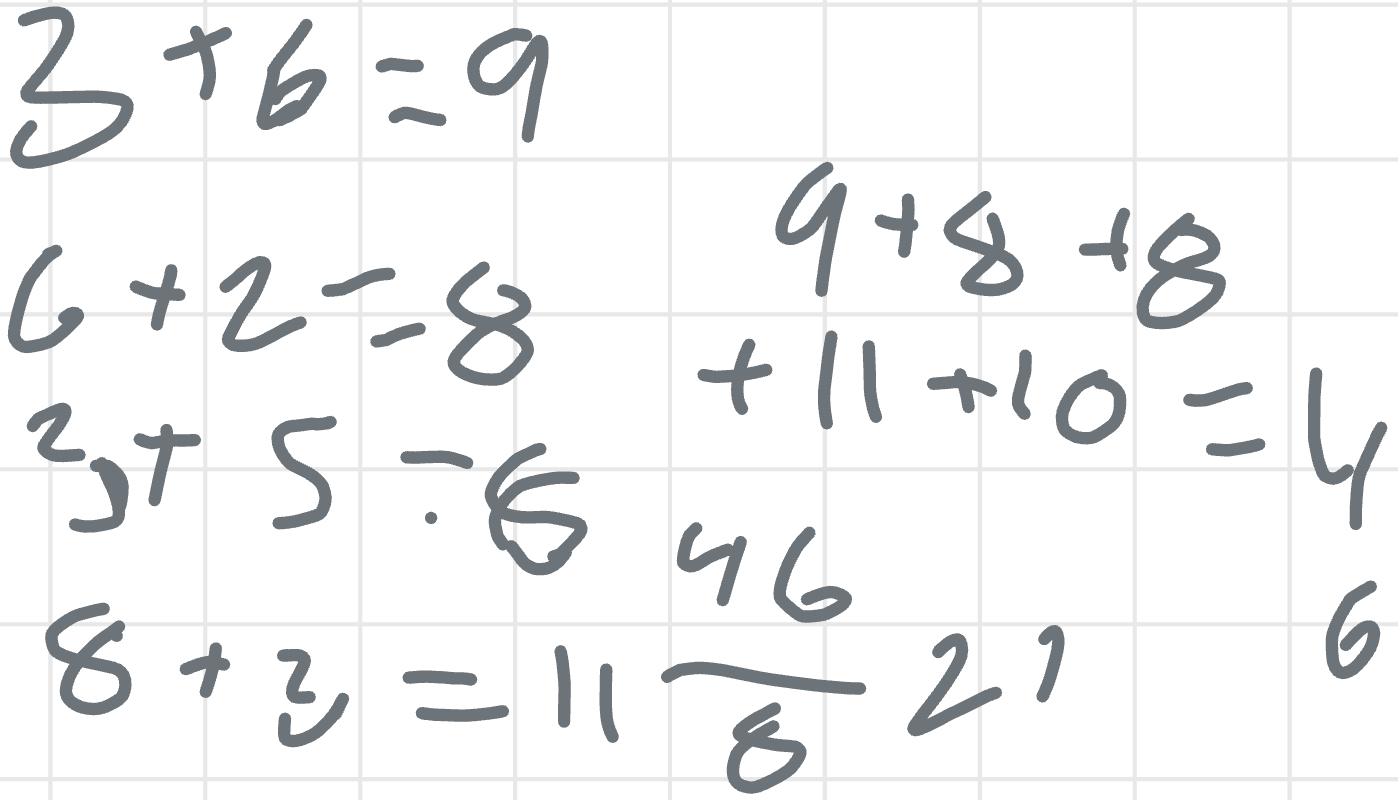 3 + 6 = 9
6 + 2 = 8
3 + 5 = 8
8 + 3 = 11
9 + 8 + 8
+ 11 + 10 = 4
6
46
8
21